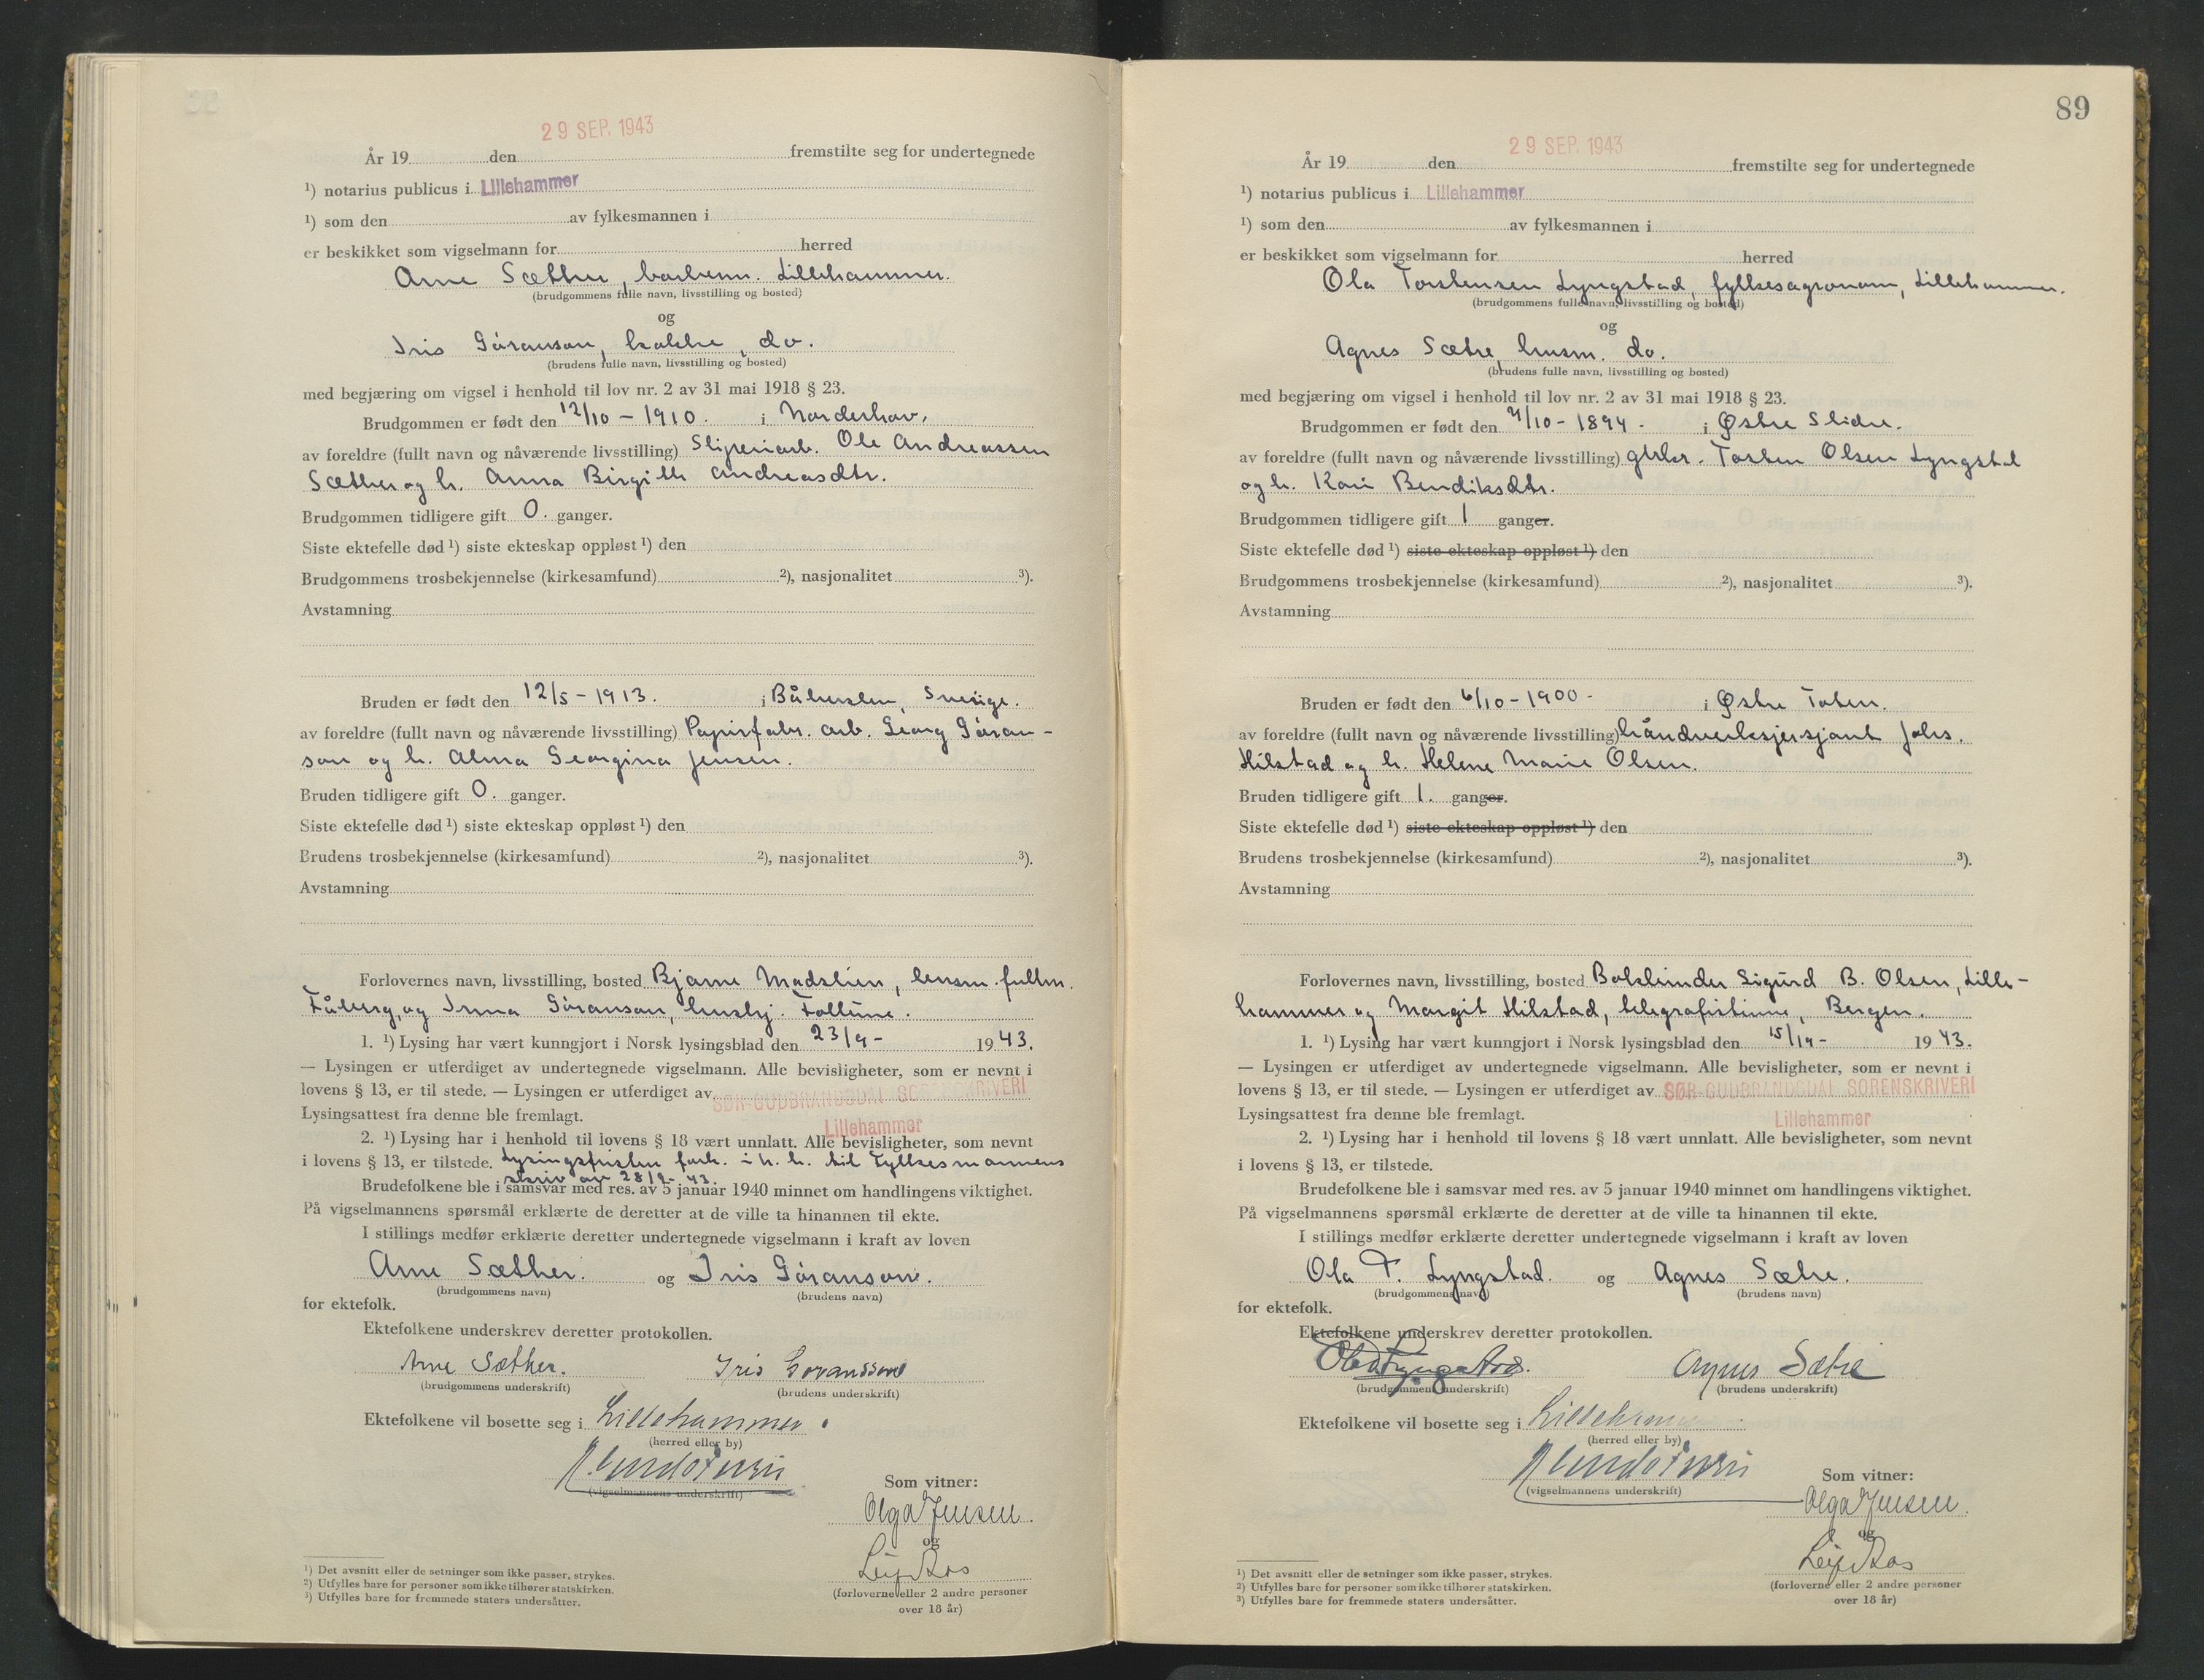 29 SEP. 1943
År 19 den fremstilte seg for undertegnede
¹) notarius publicus i Lillehammer
¹) som den av fylkesmannen i
er beskikket som vigselmann for herred
Arne Sæther, Lillehammer.
(brudgommens fulle navn, livsstilling og bosted)
og
Iris Göranson, kokke, do.
(brudens fulle navn, livsstilling og bosted)
med begjæring om vigsel i henhold til lov nr. 2 av 31 mai 1918 § 23.
Brudgommen er født den 12/10 - 1910. i Norderhov,
av foreldre (fullt navn og nåværende livsstilling) Sliperiarb. Ole Andreassen
Sæther og h. Anna Birgitte Andreasdtr.
Brudgommen tidligere gift 0. ganger.
Siste ektefelle død ¹) siste ekteskap oppløst ¹) den
Brudgommens trosbekjennelse (kirkesamfund) ²), nasjonalitet ³).
Avstamning
Bruden er født den 12/5 - 1913. i Båhuslen, Sverige.
av foreldre (fullt navn og nåværende livsstilling) Papirfabr. arb. Georg Göran-
son og h. Alma Georgina Jensen.
Bruden tidligere gift 0. ganger.
Siste ektefelle død ¹) siste ekteskap oppløst ¹) den
Brudens trosbekjennelse (kirkesamfund) ²), nasjonalitet ³).
Avstamning
Forlovernes navn, livsstilling, bosted Bjarne Madslien, lensm. fullm.
Fåberg, og Irma Göranson, hushj.
1. ¹) Lysing har vært kunngjort i Norsk lysingsblad den 23/9 - 1943.
— Lysingen er utferdiget av undertegnede vigselmann. Alle bevisligheter, som er nevnt i
lovens § 13, er til stede. — Lysingen er utferdiget av SØR-GUDBRANDSDAL SORENSKRIVERI
Lysingsattest fra denne ble fremlagt. Lillehammer
2. ¹) Lysing har i henhold til lovens § 18 vært unnlatt. Alle bevisligheter, som nevnt
i lovens § 13, er tilstede. Lysingsfristen fork. i h. h. til Fylkesmannens
skriv av 28/9 - 43.
Brudefolkene ble i samsvar med res. av 5 januar 1940 minnet om handlingens viktighet.
På vigselmannens spørsmål erklærte de deretter at de ville ta hinannen til ekte.
I stillings medfør erklærte deretter undertegnede vigselmann i kraft av loven
Arne Sæther. og Iris Göranson.
(brudgommens navn) (brudens navn)
for ektefolk.
Ektefolkene underskrev deretter protokollen.
Arne Sæther. Iris Goransson
(brudgommens underskrift) (brudens underskrift)
Ektefolkene vil bosette seg i Lillehammer.
(herred eller by)
(vigselmannens underskrift)
Som vitner:
Olga Jensen.
og
Leif Aas
(forloverne eller 2 andre personer
over 18 år)
¹) Det avsnitt eller de setninger som ikke passer, strykes.
²) Utfylles bare for personer som ikke tilhører statskirken.
³) Utfylles bare for fremmede staters undersåtter.
89
29 SEP. 1943
År 19 den fremstilte seg for undertegnede
¹) notarius publicus i Lillehammer
¹) som den av fylkesmannen i
er beskikket som vigselmann for herred
Ola Torstensen Lyngstad, fylkesagronom, Lillehammer.
(brudgommens fulle navn, livsstilling og bosted)
og
Agnes Sætre, husm. do.
(brudens fulle navn, livsstilling og bosted)
med begjæring om vigsel i henhold til lov nr. 2 av 31 mai 1918 § 23.
Brudgommen er født den /10 - 1894 - i Østre Slidre.
av foreldre (fullt navn og nåværende livsstilling) gbrkr. Torsten Olsen Lyngstad
og h. Kari Bendiksdtr.
Brudgommen tidligere gift 1 ganger.
Siste ektefelle død ¹) siste ekteskap oppløst ¹) den
Brudgommens trosbekjennelse (kirkesamfund) ²), nasjonalitet ³).
Avstamning
Bruden er født den 6/10 - 1900 - i Østre Toten.
av foreldre (fullt navn og nåværende livsstilling) håndverksjersjant Johs.
Hilstad og h. Helene Marie Olsen.
Bruden tidligere gift 1. ganger.
Siste ektefelle død ¹) siste ekteskap oppløst ¹) den
Brudens trosbekjennelse (kirkesamfund) ²), nasjonalitet ³).
Avstamning
Forlovernes navn, livsstilling, bosted Bokbinder Sigurd B. Olsen, Lille-
hammer og Margit Hilstad, telegrafistinne, Bergen.
1. ¹) Lysing har vært kunngjort i Norsk lysingsblad den 15/9 - 1943.
— Lysingen er utferdiget av undertegnede vigselmann. Alle bevisligheter, som er nevnt i
lovens § 13, er til stede. — Lysingen er utferdiget av SØR-GUDBRANDSDAL SORENSKRIVERI
Lysingsattest fra denne ble fremlagt. Lillehammer
2. ¹) Lysing har i henhold til lovens § 18 vært unnlatt. Alle bevisligheter, som nevnt
i lovens § 13, er tilstede.
Brudefolkene ble i samsvar med res. av 5 januar 1940 minnet om handlingens viktighet.
På vigselmannens spørsmål erklærte de deretter at de ville ta hinannen til ekte.
I stillings medfør erklærte deretter undertegnede vigselmann i kraft av loven
Ola T. Lyngstad. og Agnes Sætre.
(brudgommens navn) (brudens navn)
for ektefolk.
Ektefolkene underskrev deretter protokollen.
Ola T Lyngstad. Agnes Sætre
(brudgommens underskrift) (brudens underskrift)
Ektefolkene vil bosette seg i Lillehammer
(herred eller by)
(vigselmannens underskrift)
Som vitner:
Olga Jensen.
og
Leif Aas
(forloverne eller 2 andre personer
over 18 år)
¹) Det avsnitt eller de setninger som ikke passer, strykes.
²) Utfylles bare for personer som ikke tilhører statskirken.
³) Utfylles bare for fremmede staters undersåtter.